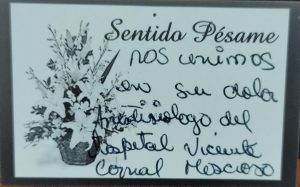 Sentido Pésame
nos unimos
en su dolor
Anestesiologo del
Hospital Vicente
Corral Moscoso